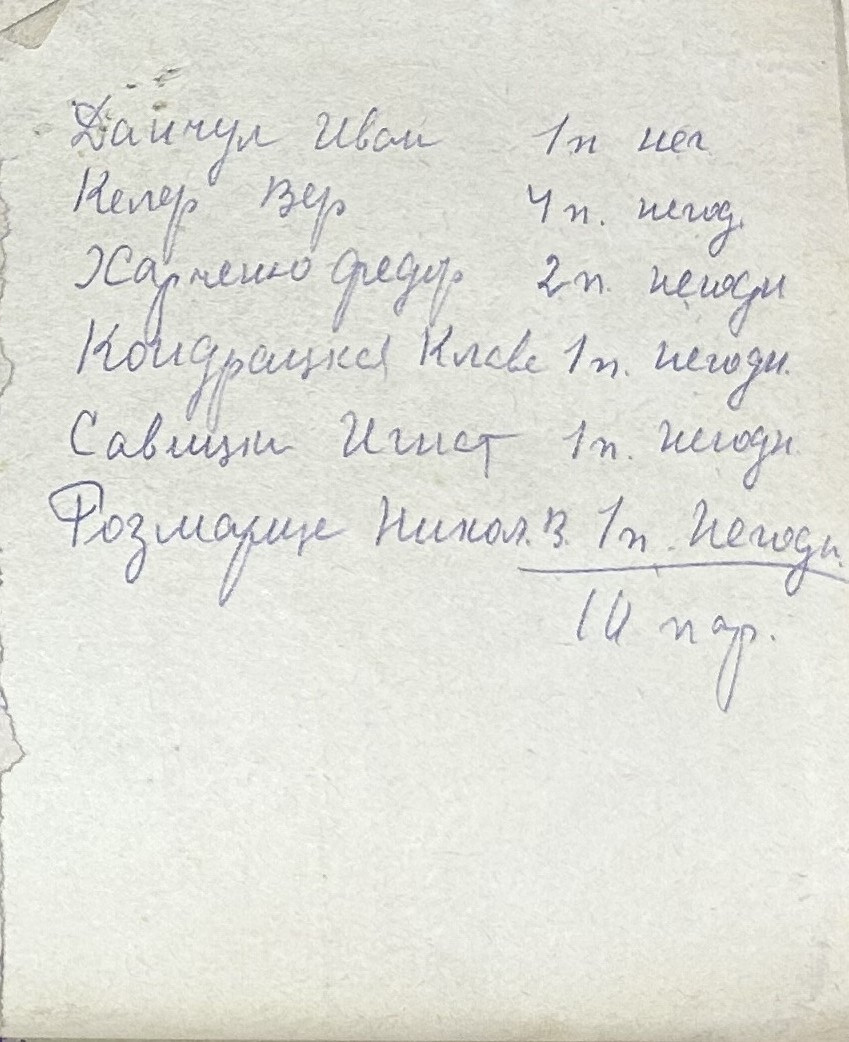 Данчул Иван 1п нег
Келер Вер 4п. негод.
Харченко Федор 2п. негодн
Кондрацкая Клаве 1п. негодн.
Савицки Игнст 1п. негодн.
Розмарице Никол. В. 1п. Негодн.
10 пар.